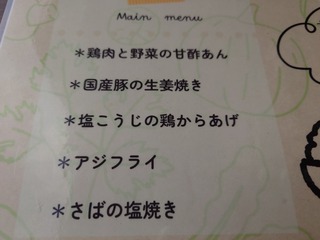 Main menu
*鶏肉と野菜の甘酢あん
*国産豚の生姜焼き
*塩こうじの鶏からあげ
*アジフライ
*さばの塩焼き